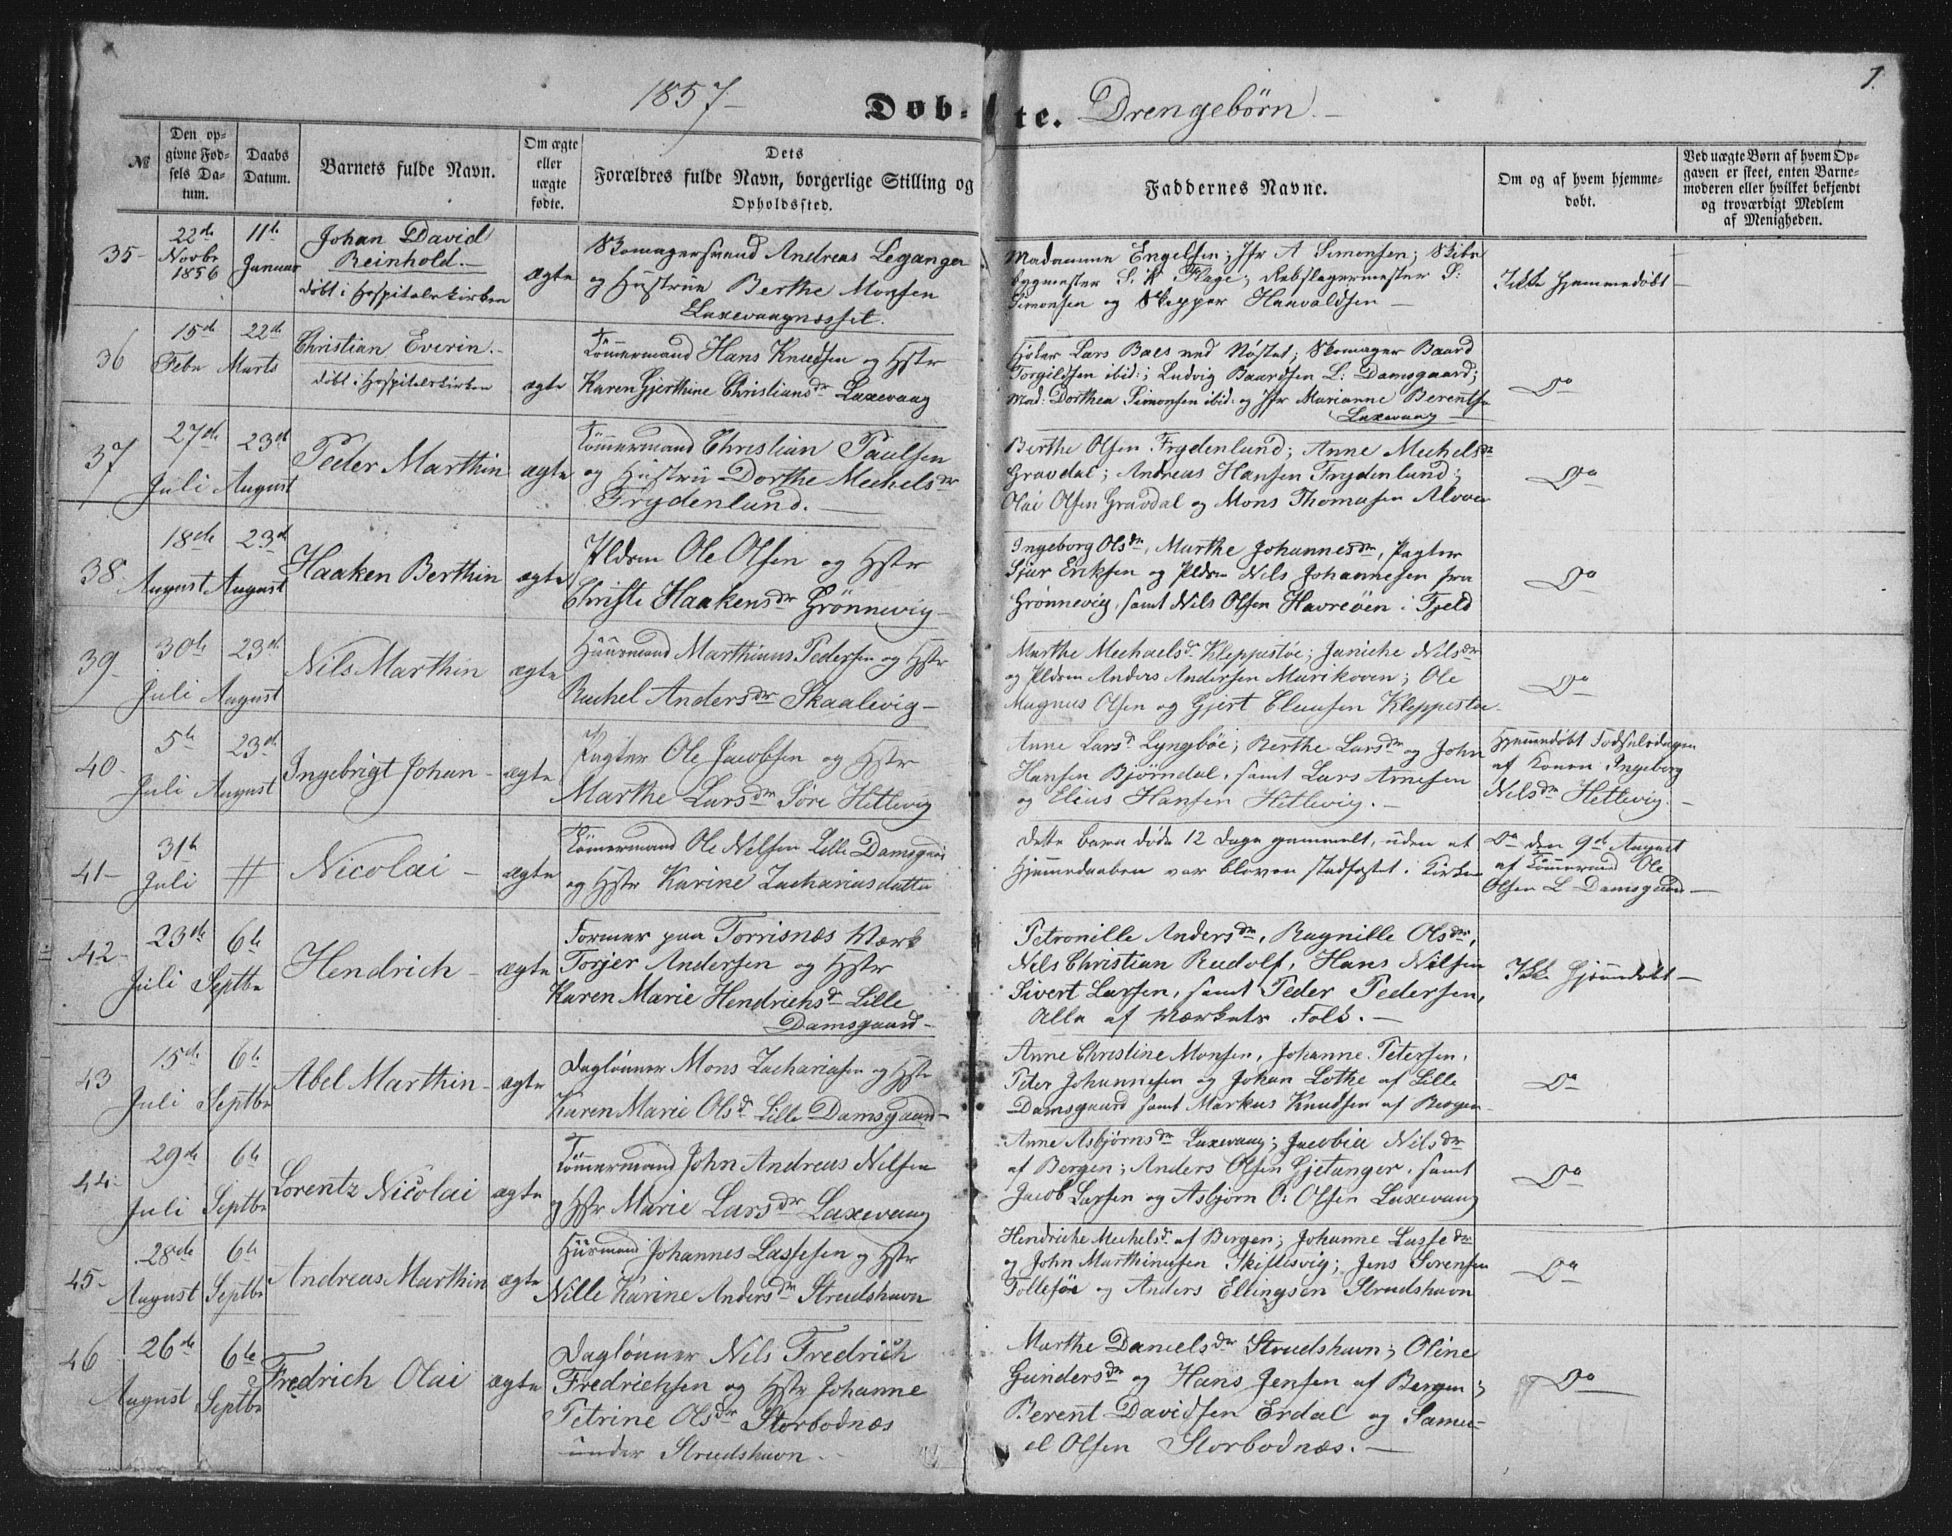 1857 –
Døb-te. Drengebørn. –
1.
№
Den opgivne Fødsels Datum.
Daabs Datum.
Barnets fulde Navn.
Om ægte eller uægte fødte.
Dets Forældres fulde Navn, borgerlige Stilling og Opholdssted.
Faddernes Navne.
Om og af hvem hjemmedøbt.
Ved uægte Børn af hvem Opgaven er skeet, enten Barnemoderen eller hvilket bekjendt og troværdigt Medlem af Menigheden.
35 –
22de Novbr 1856
11te Januar
Johan David
Reinhold. –
døbt i Hospitalskirken
ægte
Skomagersvend Andreas Leganger
og Hustrue Berthe Monsen
Laxevaagnæsset.
Madamme Engelsen; Jfr A Simonsen; Skibs
bygmester S. K Flage; Rebslagermester S:
Simonsen og Skipper Haavaldsen –
Ikke hjemmedøbt –
36
15de Febr
22de Marts
Christian Everin. –
døbt i Hospitalskirken
ægte
Tømmermand Hans Knudsen og Hstr
Karen Gjerthine Christiansdr Laxevaag
Lars Baes ved Nøstet; Skomager Baard
Torgildsen ibid:; Ludvig Baardsen L: Damsgaard;
Mad: Dorthea Simonsen ibid: og Jfr Marianne Berentsen
Laxevaag –
Do
37
27de Juli
23de August
Peder Marthin
ægte
Tømmermand Christian Paulsen
og Hustru Dorthe Mechelsdr
Frydenlund. –
Berthe Olsen Frydenlund; Anne Mechelsdr
Gravdal; Andreas Hansen Frydenlund;
Olai Olsen Gravdal og Mons Thomasen Alvøen
Do
38
18de August
23de August
Haaken Berthin
ægte
Pldsm Ole Olsen og Hstr
Christi Haakensdr Grønnevig –
Ingeborg Olsdr, Marthe Johannesdr, Pagter
Sjur Eriksen og Pldsm Nils Johannesen fra
Grønnevig, samt Nils Olsen Havreøen i Fjeld
Do
39
30te Juli
23de August
Nils Marthin
ægte
Huusmand Marthinus Pedersen og Hstr
Rachel Andersdr Skaalevig –
Marthe Mechaelsdr Kleppestøe; Janiche Nilsdr
og Pldsm Anders Andersen Marikoven; Ole
Magnus Olsen og Gjert Clausen Kleppestøe
Do
40
5te Juli
23de August
Ingebrigt Johan –
ægte
Pagter Ole Jacobsen og Hstr
Marthe Larsdr Søre Hetlevig
Anne Larsdr Lyngbøe; Berthe Larsdr og John
Hansen Bjørndal, samt Lars Arnesen
og Elias Hansen Hetlevig. –
Hjemmedøbt Fødselsdagen
af Konen Ingeborg
Nilsdr Hetlevig. –
41 –
31te Juli
#
Nicolai –
ægte
Tømmermand Ole Nilsen Lille Damsgaard
og Hstr Karine Zachariasdatter
Dette barn døde 12 Dage gammelt, uden at
Hjemmedaaben var bleven stadfæstet i Kirken
Do den 9de August
af Tømmermd Ole
Olsen L Damsgaard –
42 –
23de Juli
6te Septbr
Hendrich –
ægte
Former paa Torrisnæs Værk
Torjer Andersen og Hstr
Karen Marie Hendrichsdr Lille
Damsgaard –
Petronille Andersdr, Ragnille Olsdr,
Nils Christian Rudolf, Hans Nilsen
Sivert Larsen, samt Peder Pedersen,
Alle af Værkets Folk. –
Ikke hjemmedøbt –
43
15de Juli
6te Septbr
Abel Marthin –
ægte
Daglønner Mons Zachariasen og Hstr
Karen Marie Olsdr Lille Damsgaard –
Anne Christine Monsen, Johanne Petersen,
Peter Johannesen og Johan Lothe af Lille
Damsgaard samt Markus Knudsen af Bergen
Do
44 –
29de Juli
6te Septbr
Lorentz Nicolai
ægte
Tømmermand John Andreas Nilsen
og Hstr Marie Larsdr Laxevaag
Anne Asbjørnsdr Laxevaag; Jacobia Nilsdr
af Bergen; Anders Olsen Gjetanger, samt
Jacob Larsen og Asbjørn O: Olsen Laxevaag
Do
45 –
28de August
6te Septbr
Andreas Marthin
ægte
Husmand Johannes Lassesen og Hstr
Nille Karine Andersdr Strudshavn
Hendriche Mechelsdr af Bergen; Johanne Lassedr
og John Marthinusen Skiftesvig; Jens Sørensen
Follesøe og Anders Ellingsen Strudshavn
Do
46
26de August
6te Septbr
Fredrich Olai
ægte
Daglønner Nils Fredrich
Fredrichsen og Hstr Johanne
Petrine Olsdr Storbodnæs
under Strudshavn –
Marthe Danielsdr Strudshavn; Oline
Gundersdr og Hans Jensen af Bergen;
Berent Davidsen Erdal og Samu-
el Olsen Storbodnæs. –
Do